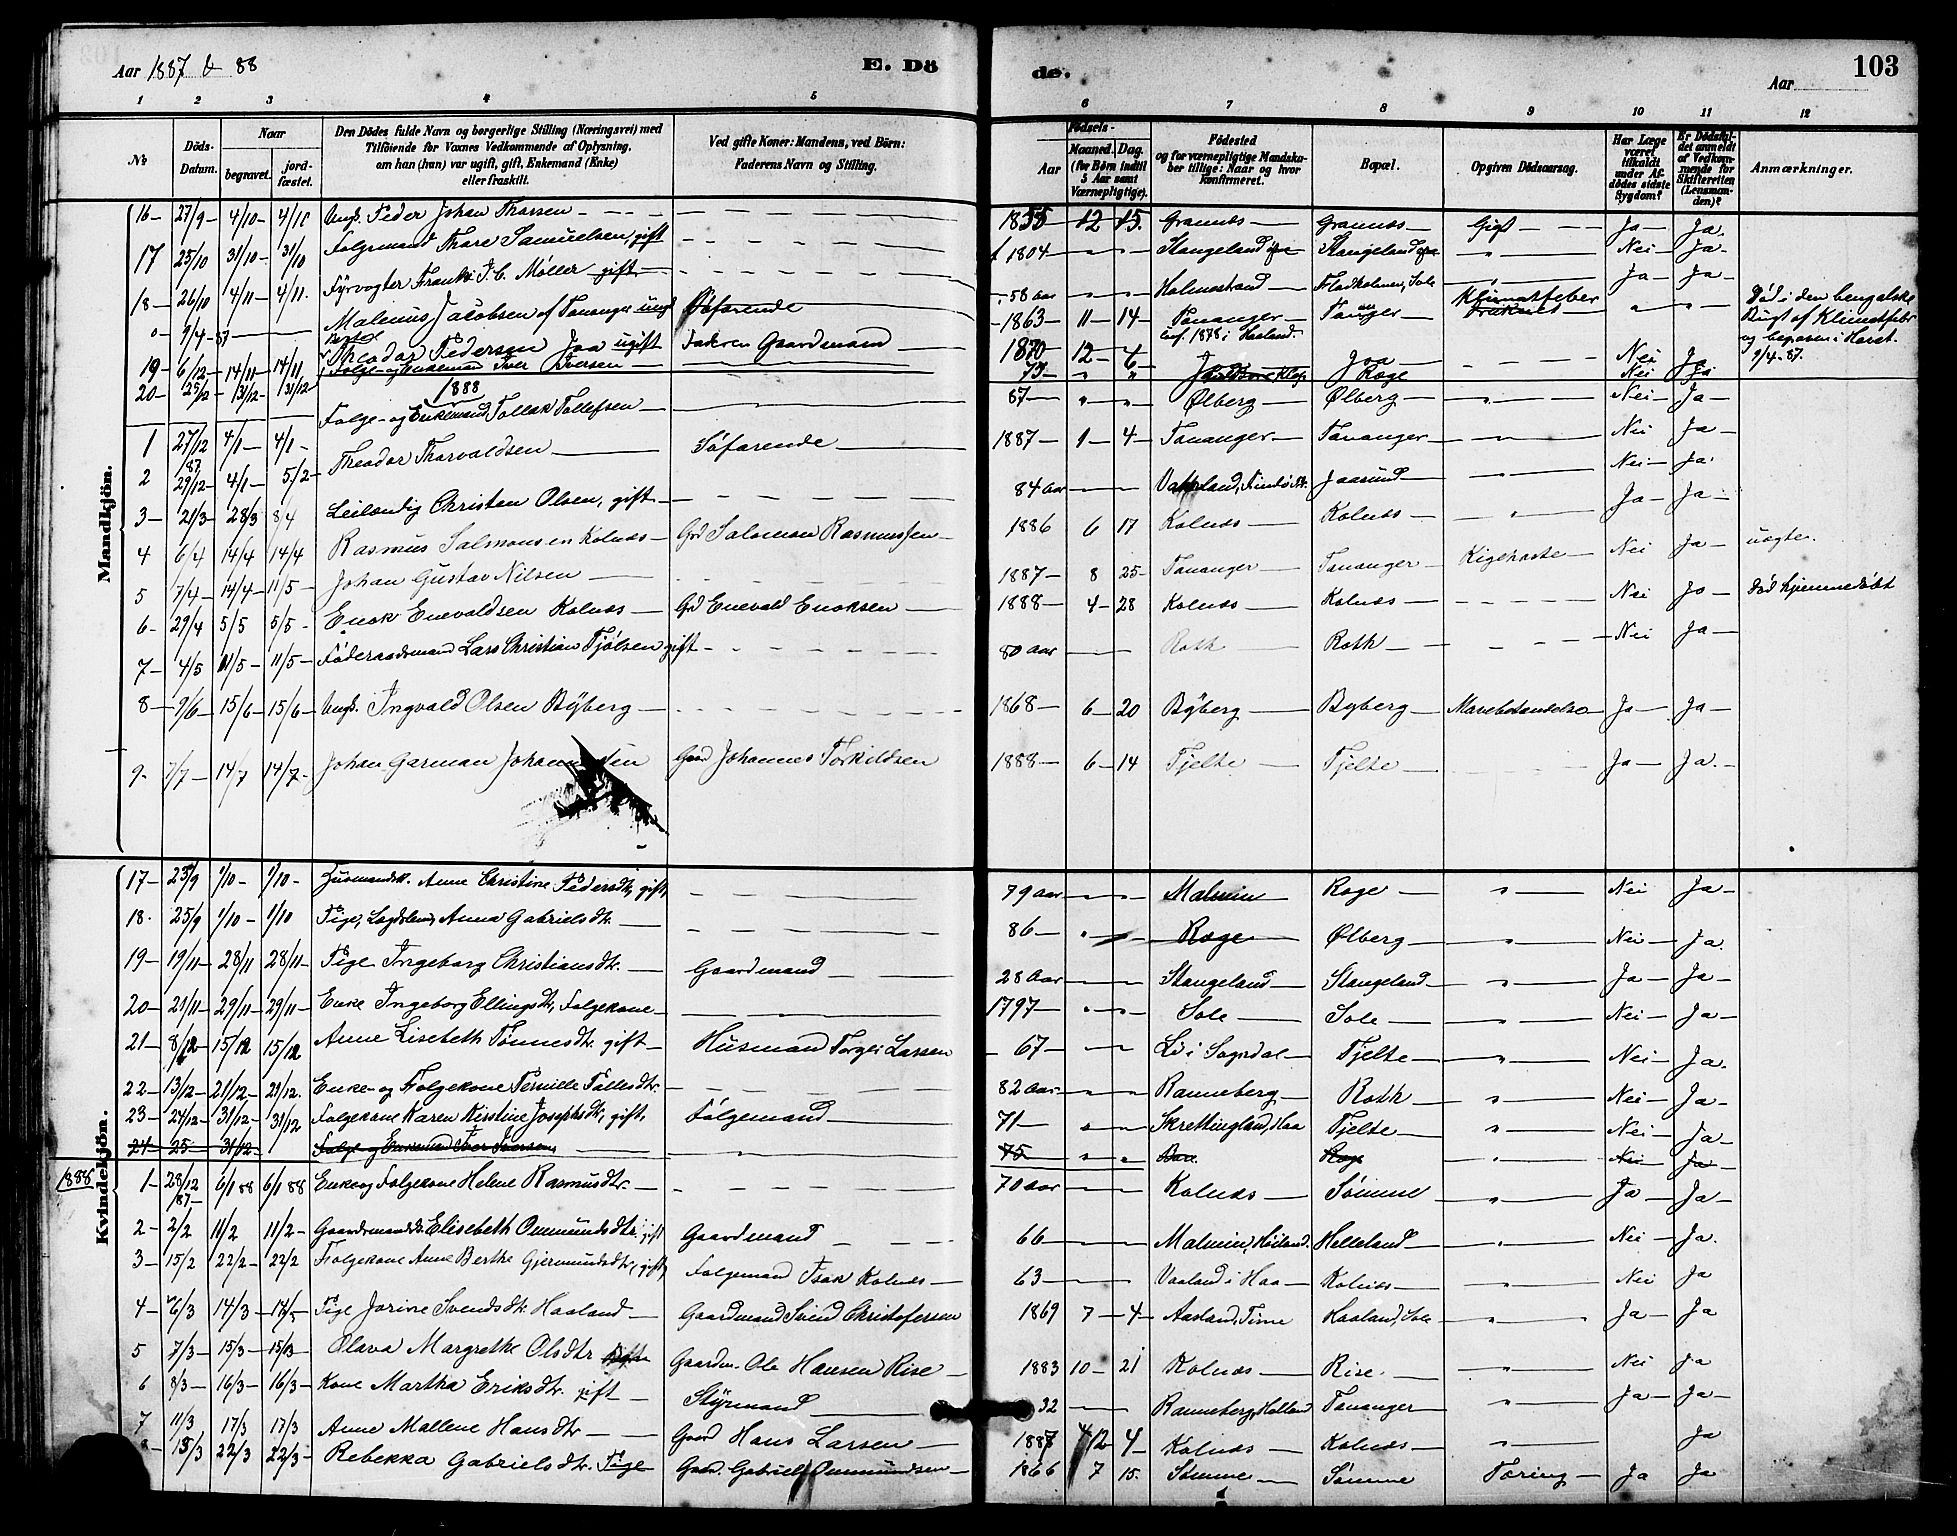 Aar 1887 & 88 E. Dö de. Aar 103
1 2 3 4 5 6 7 8 9 10 11 12
No Döds-Datum. Naar begravet. jord-fæstet. Den Dödes fulde Navn og borgerlige Stilling (Næringsvei) med Tilföiende for Voxnes Vedkommende af Oplysning, om han (hun) var ugift, gift, Enkemand (Enke) eller fraskilt. Ved gifte Koner: Mandens, ved Börn: Faderens Navn og Stilling. Födsels- Aar Maaned. Dag. (for Börn indtil 5 Aar samt Værnepligtige). Födested og for værnepligtige Mandskaber tillige: Naar og hvor konfirmeret. Bopæl. Opgiven Dödsaarsag. Har Læge været tilkaldt under Afdödes sidste Sygdom? Er Dödsfaldet anmeldt af Vedkommende for Skifteretten (Lensmanden)? Anmærkninger.
Mandkjön.
16 27/9 4/10 Ungk. Peder Johan Tharsen 1855 12 15. Grannes Grannes Gigt Ja Ja
17 25/10 31/10 31/10 Folgemand Thore Samuelsen, gift 1804 Stangeland Stangeland Nei Ja
18 26/10 4/11 4/11. Fyrvogter Frantz J. C. Møller gift 58 aar Holmestrand Fladholmen, Sole Ja Ja
9/4 87 Malenius Jacobsen af Tananger ungk Søfarende 1863 11 14 Tananger Tananger Klimatfeber Død i den bengalske Bugt af Klimatfeber og begraven i Havet. 9/4 87.
19 6/12 14/11 14/11 Theodor Pedersen Joa ugift Faderen Gaardmand 1870 12 6 Joa Joa Nei Ja
20 25/12 31/12 31/12 Folge- og Enkemand Iver Iversen 75 Klep Roge Nei Ja
1888
1 27/12 87 4/1 4/1 Folge- og Enkemand Tollak Tollefsen 87 Ølberg Ølberg Nei Ja
2 29/12 4/1 5/2 Theodor Thorvaldsen Søfarende 1887 1 4 Tananger Tananger Nei Ja
3 21/3 28/3 8/4 Leilændig Christen Olsen, gift 84 aar Jaasund Nei Ja
4 6/4 14/4 14/4 Rasmus Salmonsen Kolnes Grd Salomon Rasmussen 1886 6 17 Kolnes Kolnes Ja Ja
5 7/4 14/4 11/5 Johan Gustav Nilsen 1887 8 25 Tananger Tananger Kigehoste Nei Ja uægte.
6 29/4 5/5 5/5 Enok Enevaldsen Kolnes Gd Enevald Enoksen 1888 4 28 Kolnes Kolnes Nei Ja død hjemmedøbt
7 4/5 11/5 11/5 Føderaadsmand Lars Christian Tjølsen gift 80 aar Roth Roth Nei Ja
8 9/6 15/6 15/6 Ungk. Ingvald Olsen Byberg 1868 6 20 Byberg Byberg Mavebetændelse Ja Ja
9 7/7 14/7 14/7 Johan Garman Gaard Johannes Torkildsen 1888 6 14 Tjelte Tjelte Ja Ja
Kvindekjön.
17 23/9 1/10 1/10 Husmandsk. Anne Christine Pedersdtr, gift 79 aar Malmin Roge Nei Ja
18 25/9 1/10 1/10 Pige, Lægdslem, Anna Gabrielsdtr. 86 Roge Ølberg Nei Ja
19 19/11 28/11 28/11 Pige Ingeborg Christiansdtr. Gaardmand 28 Aar Stangeland Stangeland Ja Ja
20 21/11 29/11 29/11 Enke Ingeborg Ellingsdtr, Folgekone 1797 Sole Sole Nei Ja
21 8/12 15/12 15/12 Anne Lisebeth Tønnesdtr. gift Husmand Torgei Larsen 67 Li i Sogndal Tjelte Nei Ja
22 13/12 21/12 21/12. Enke- og Folgekone Pernille Pallesdtr. 82 aar Ranneberg Roth Nei Ja
23 24/12 31/12 31/12 Folgekone Karen Kirstine Josephsdtr, gift, Folgemand 71 Skrettingland, Haa Tjelte Nei Ja
24 25 31/12 Folge og Enkemand Iver Iversen 75 Roge Nei Ja
1888
1 28/12 87 6/1 88 6/1 88 Enke og Folgekone Helene Rasmusdtr. 70 aar Kolnes Sømme Ja Ja
2 2/2 11/2 11/2 Gaardmandsk. Elisebeth Ommundsdtr. gift Gaardmand 66 Malmin, Høiland. Helleland Nei Ja
3 15/2 22/2 22/2 Folgekone Anne Berthe Gjermundsdtr, gift, Folgemand Isak Kolnes 63 Vaaland i Haa Kolnes Nei Ja
4 6/3 14/3 14/3 Pige Jorine Svendsdtr. Haaland Gaardmand Svend Christofersen 1869 7 4 Aasland, Time Haaland, Sole Ja Ja
5 7/3 15/3 15/3 Olava Margrethe Olsdtr Gaardm. Ole Hansen Rise 1883 10 21 Kolnes Rise Nei Ja
6 8/3 16/3 16/3 Kone Martha Eriksdtr. gift Styrmand 32 Ranneberg, Hetland Tananger Ja Ja
7 11/3 17/3 17/3 Anne Mallene Hansdtr Gaard Hans Larsen 1887 12 4 Kolnes Kolnes Ja
15/3 22/3 22/3 Rebekka Gabrielsdtr. Pige Gaard. Gabriel Ommundsen 1866 7 15. Sømme Sømme Tæring Ja Ja